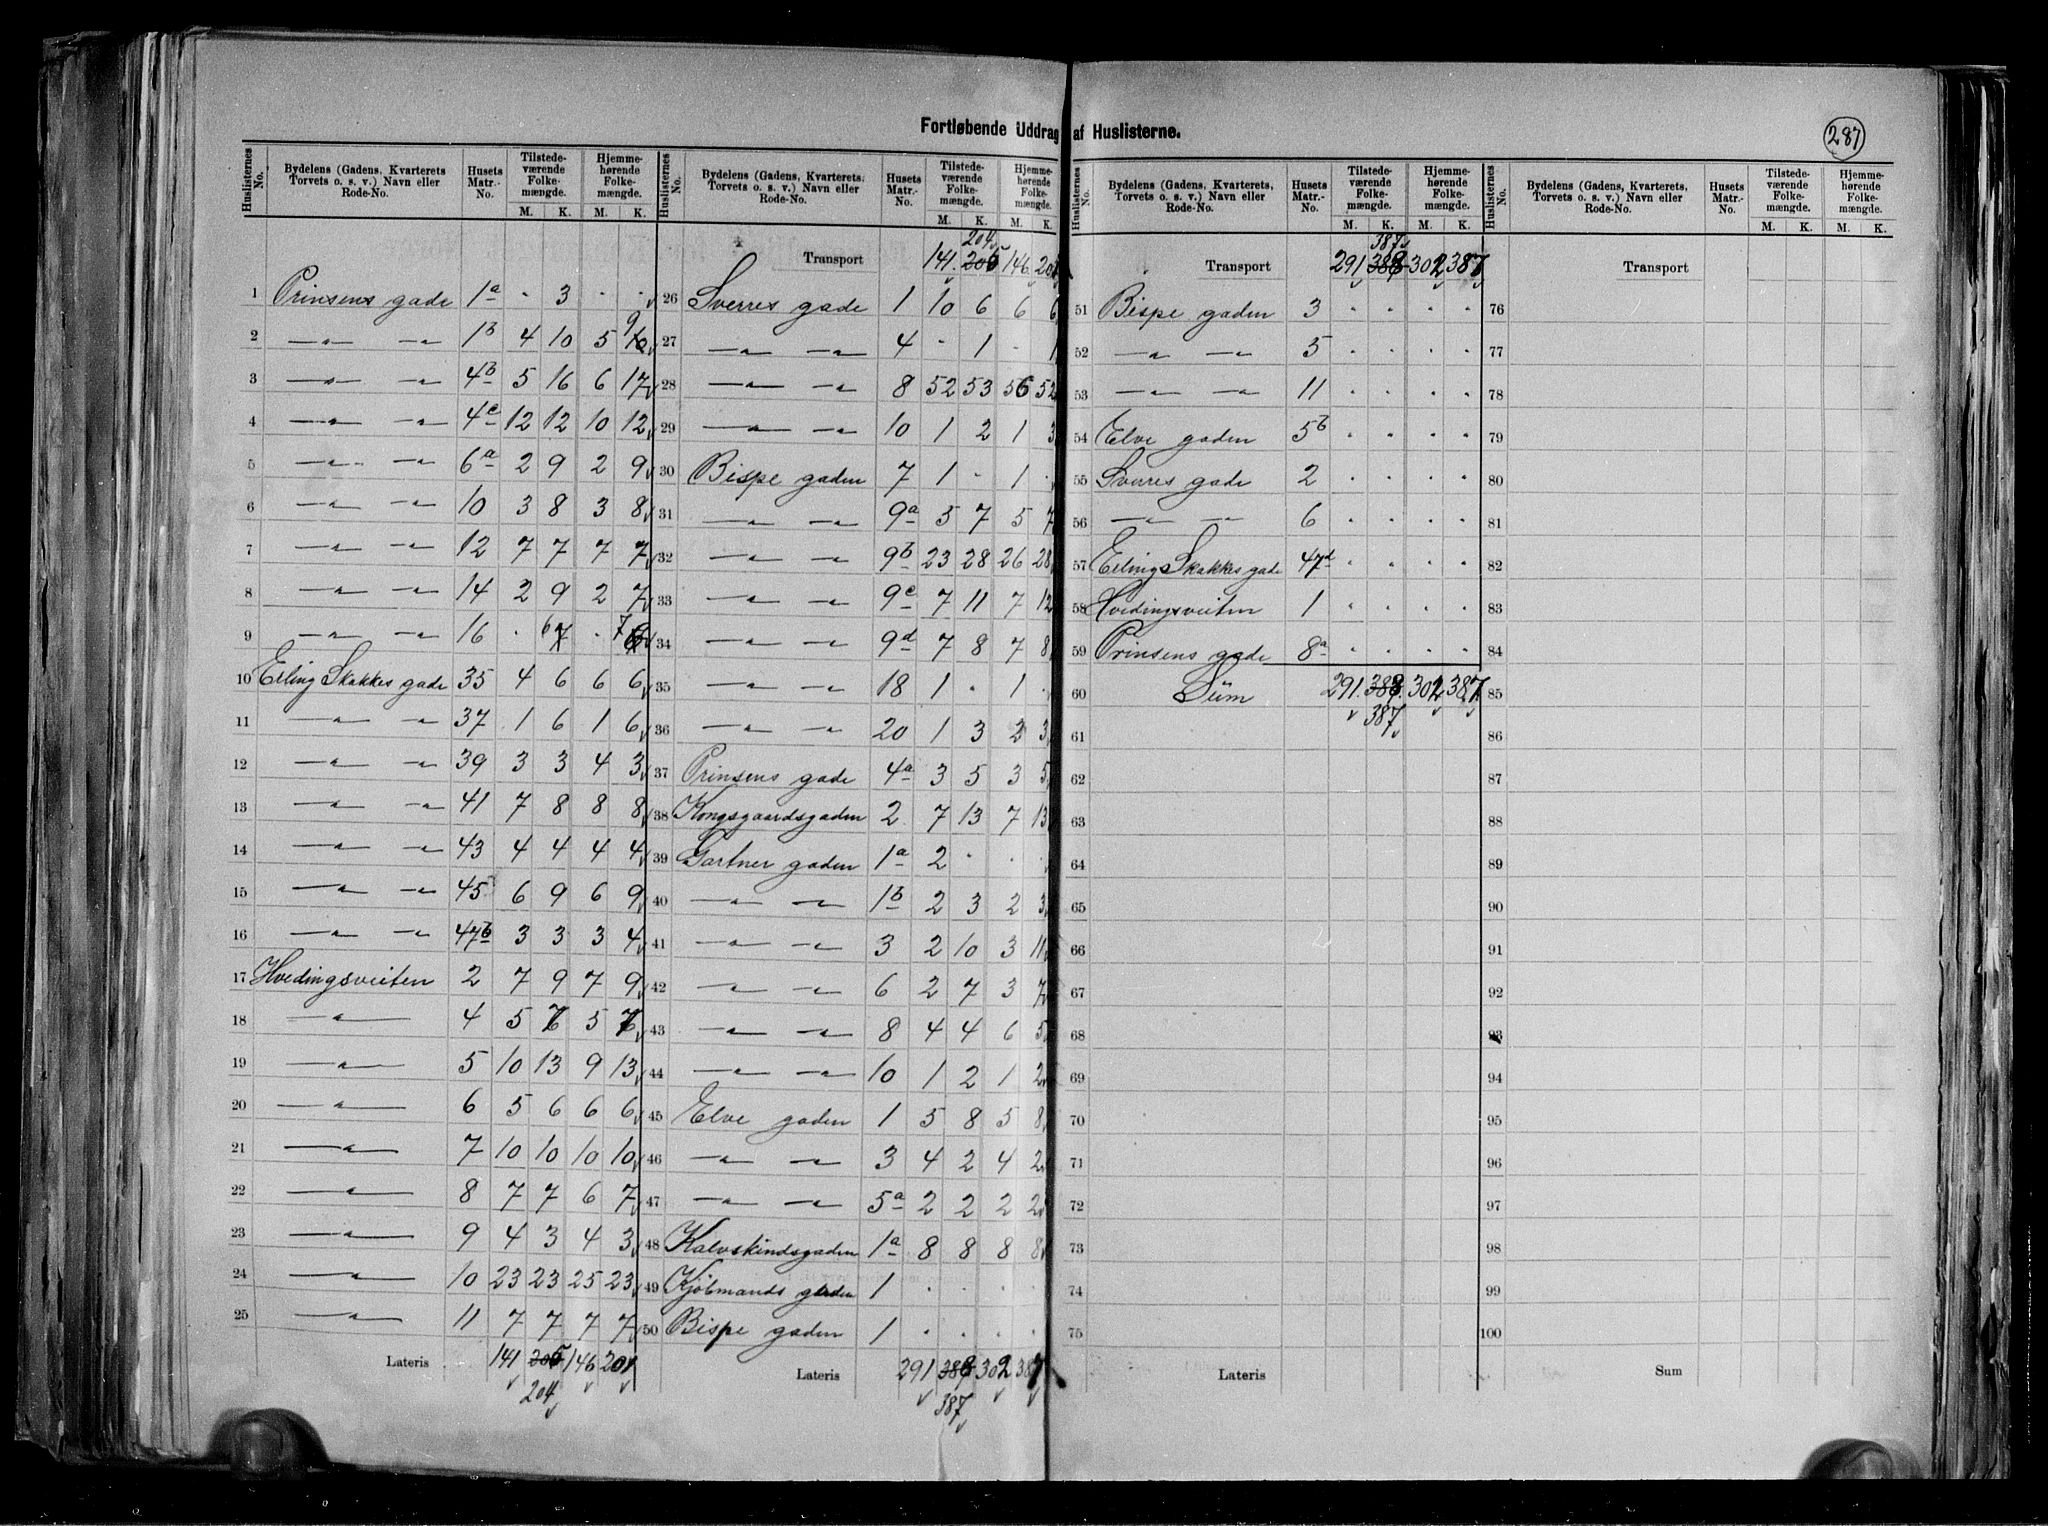 Fortløbende Uddrag af Huslisterne.
287
Huslisternes No. Bydelens (Gadens, Kvarterets Torvets o. s. v.) Navn eller Rode-No. Husets Matr.-No. Tilstedeværende Folkemængde. M. K. Hjemmehørende Folkemængde. M. K.
1 Prinsens gade 1a · 3 · ·
2 —„— —„— 1b 4 10 5 9
3 —„— —„— 4b 5 16 6 17
4 —„— —„— 4c 12 12 10 12
5 —„— —„— 6a 2 9 2 9
6 —„— —„— 10 3 8 3 8
7 —„— —„— 12 7 7 7 7
8 —„— —„— 14 2 9 2 7
9 —„— —„— 16 · 6 7 · 7 6
10 Erling Skakkes gade 35 4 6 6 6
11 —„— —„— 37 1 6 1 6
12 —„— —„— 39 3 3 4 3
13 —„— —„— 41 7 8 8 8
14 —„— —„— 43 4 4 4 4
15 —„— —„— 45 6 9 6 9
16 —„— —„— 47b 3 3 3 4
17 Hvedingsveiten 2 7 9 7 9
18 —„— 4 5 5
19 —„— 5 10 13 9 13
20 —„— 6 5 6 6 6
21 —„— 7 10 10 10 10
22 —„— 8 7 7 6 7
23 —„— 9 4 3 4 3
24 —„— 10 23 23 25 23
25 —„— 11 7 7 7 7
Lateris 141 205 146 201
204
Huslisternes No. Bydelens (Gadens, Kvarterets, Torvets o. s. v.) Navn eller Rode-No. Husets Matr.-No. Tilstedeværende Folkemængde. M. K. Hjemmehørende Folkemængde. M. K.
204
Transport 141 205 146 201
26 Sverres gade 1 10 6 6 6
27 —„— —„— 4 · 1 · 1
28 —„— —„— 8 52 53 56 52
29 —„— —„— 10 1 2 1 3
30 Bispe gaden 7 1 · 1 ·
31 —„— —„— 9a 5 7 5 7
32 —„— —„— 9b 23 28 26 28
33 —„— —„— 9c 7 11 7 12
34 —„— —„— 9d 7 8 7 8
35 —„— —„— 18 1 · 1 ·
36 —„— —„— 20 1 3 2 3
37 Prinsens gade 4a 3 5 3 5
38 Kongsgaardsgaden 2 7 13 7 13
39 Gartner gaden 1a 2 · · ·
40 —„— —„— 1b 2 3 2 3
41 —„— —„— 3 2 10 3 11
42 —„— —„— 6 2 7 3 7
43 —„— —„— 8 4 4 6 5
44 —„— —„— 10 1 2 1 2
45 Elve gaden 1 5 8 5 8
46 —„— —„— 3 4 2 4 2
47 —„— —„— 5a 2 2 2 2
48 Kalvskindsgaden 1a 8 8 8 8
49 Kjøbmands gaden 1 · · · ·
50 Bispe gaden 1 · · · ·
Lateris 291 388 302 387
387
Huslisternes No. Bydelens (Gadens, Kvarterets, Torvets o. s. v.) Navn eller Rode-No. Husets Matr.-No. Tilstedeværende Folkemængde. M. K. Hjemmehørende Folkemængde. M. K.
387
Transport 291 388 302 387
51 Bispe gaden 3 · · · ·
52 —„— —„— 5 · · · ·
53 —„— —„— 11 · · · ·
54 Elve gaden 5b · · · ·
55 Sverres gade 2 · · · ·
56 —„— —„— 6 · · · ·
57 Erling Skakkes gade 47d · · · ·
58 Hvedingsveiten 1 · · · ·
59 Prinsens gade 8a · · · ·
60 Sum 291 388 302 387
387
61
62
63
64
65
66
67
68
69
70
71
72
73
74
75
Lateris
Huslisternes No. Bydelens (Gadens, Kvarterets, Torvets o. s. v.) Navn eller Rode-No. Husets Matr.-No. Tilstedeværende Folkemængde. M. K. Hjemmehørende Folkemængde. M. K.
Transport
76
77
78
79
80
81
82
83
84
85
86
87
88
89
90
91
92
93
94
95
96
97
98
99
100
Sum